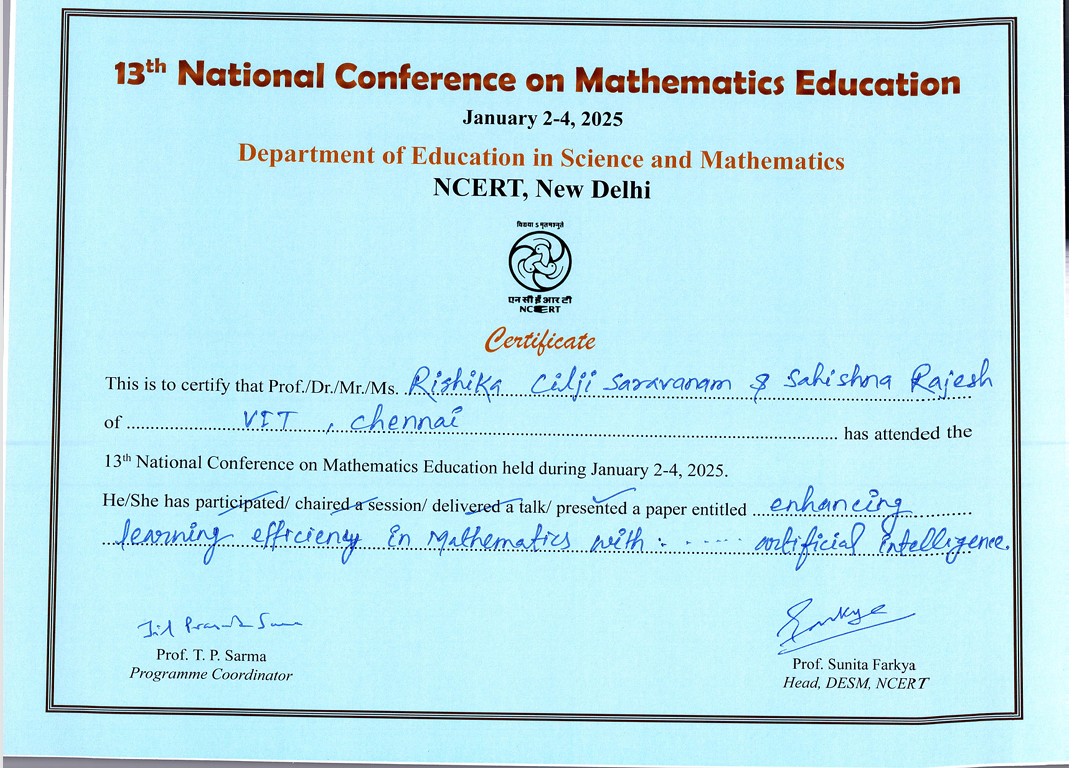 13th National Conference on Mathematics Education
January 2-4, 2025
Department of Education in Science and Mathematics
NCERT, New Delhi
विद्यया ऽ मृतमश्नुते
एन सी ई आर टी
NCERT
Certificate
This is to certify that Prof./Dr./Mr./Ms. Rishika Cilji Saravanam & Sahishna Rajesh
of VIT, Chennai has attended the
13th National Conference on Mathematics Education held during January 2-4, 2025.
He/She has participated/ chaired a session/ delivered a talk/ presented a paper entitled enhancing
learning efficiency in Mathematics with : ..... artificial intelligence.
Prof. T. P. Sarma
Programme Coordinator
Prof. Sunita Farkya
Head, DESM, NCERT